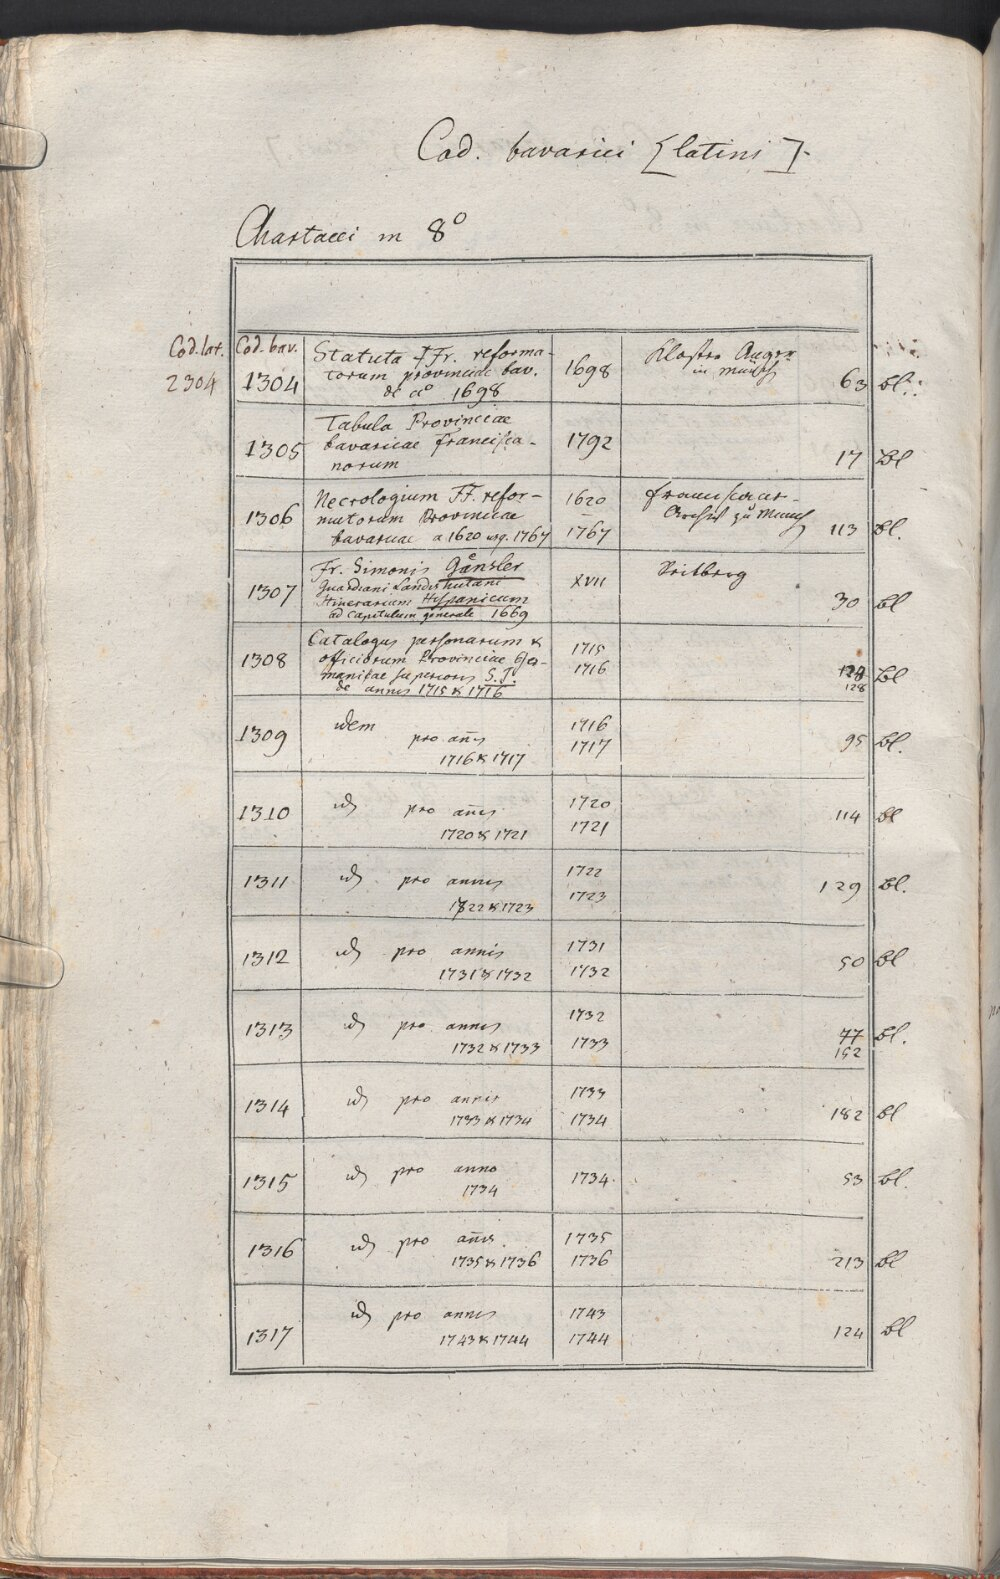 Cod. bavarici [latini].
Chartacei in 8°
Cod. lat. Cod. bav.
2304 1304 Statuta FFr. reforma-
torum provinciae bav.
de aº 1698 1698 63 bl.
in Münch
1305 Tabula Provinciae
bavaricae Francisca-
norum 1792 17 Bl
1306 Necrologium FF. refor-
matorum Provinciae
bavaricae a 1620 usq. 1767 1620
1767 113 bl.
Archiv zu Münch
1307 Fr. Simonis Gänsler
Guardiani Landishutani
Itinerarium Hispanicum
ad capitulum generale 1669 XVII 30 bl
1308 Catalogus personarum &
officiorum Provinciae Ger-
maniae superioris S.J.
de annis 1715 & 1716 1715
1716 128 bl
1309 idem
pro añis
1716 & 1717 1716
1717 95 bl.
1310 id pro añis
1720 & 1721 1720
1721 114 bl
1311 id pro annis
1722 & 1723 1722
1723 129 bl.
1312 id pro annis
1731 & 1732 1731
1732 50 bl
1313 id pro annis
1732 & 1733 1732
1733 77 bl.
152
1314 id pro annis
1733 & 1734 1733
1734 182 bl
1315 id pro anno
1734 1734 53 bl.
1316 id pro añis
1735 & 1736 1735
1736 213 bl
1317 id pro annis
1743 & 1744 1743
1744 124 bl